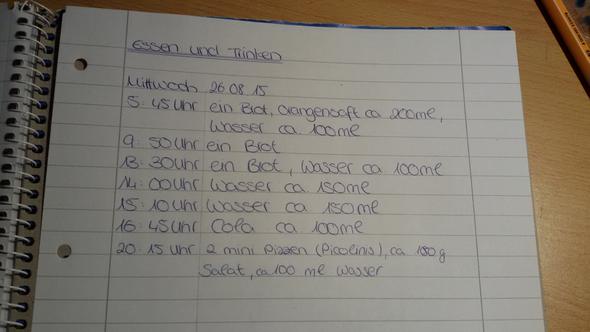 Essen und Trinken
Mittwoch 26.08.15
5:45 Uhr ein Brot, Orangensaft ca 200ml,
Wasser ca 100ml
9:50 Uhr ein Brot
13:30 Uhr ein Brot, Wasser ca 100ml
14:00 Uhr Wasser ca 150ml
15:10 Uhr Wasser ca 150ml
16:45 Uhr Cola ca 100ml
20:15 Uhr 2 mini Pizzen (Picolinis), ca 180g
Salat, ca 100 ml Wasser